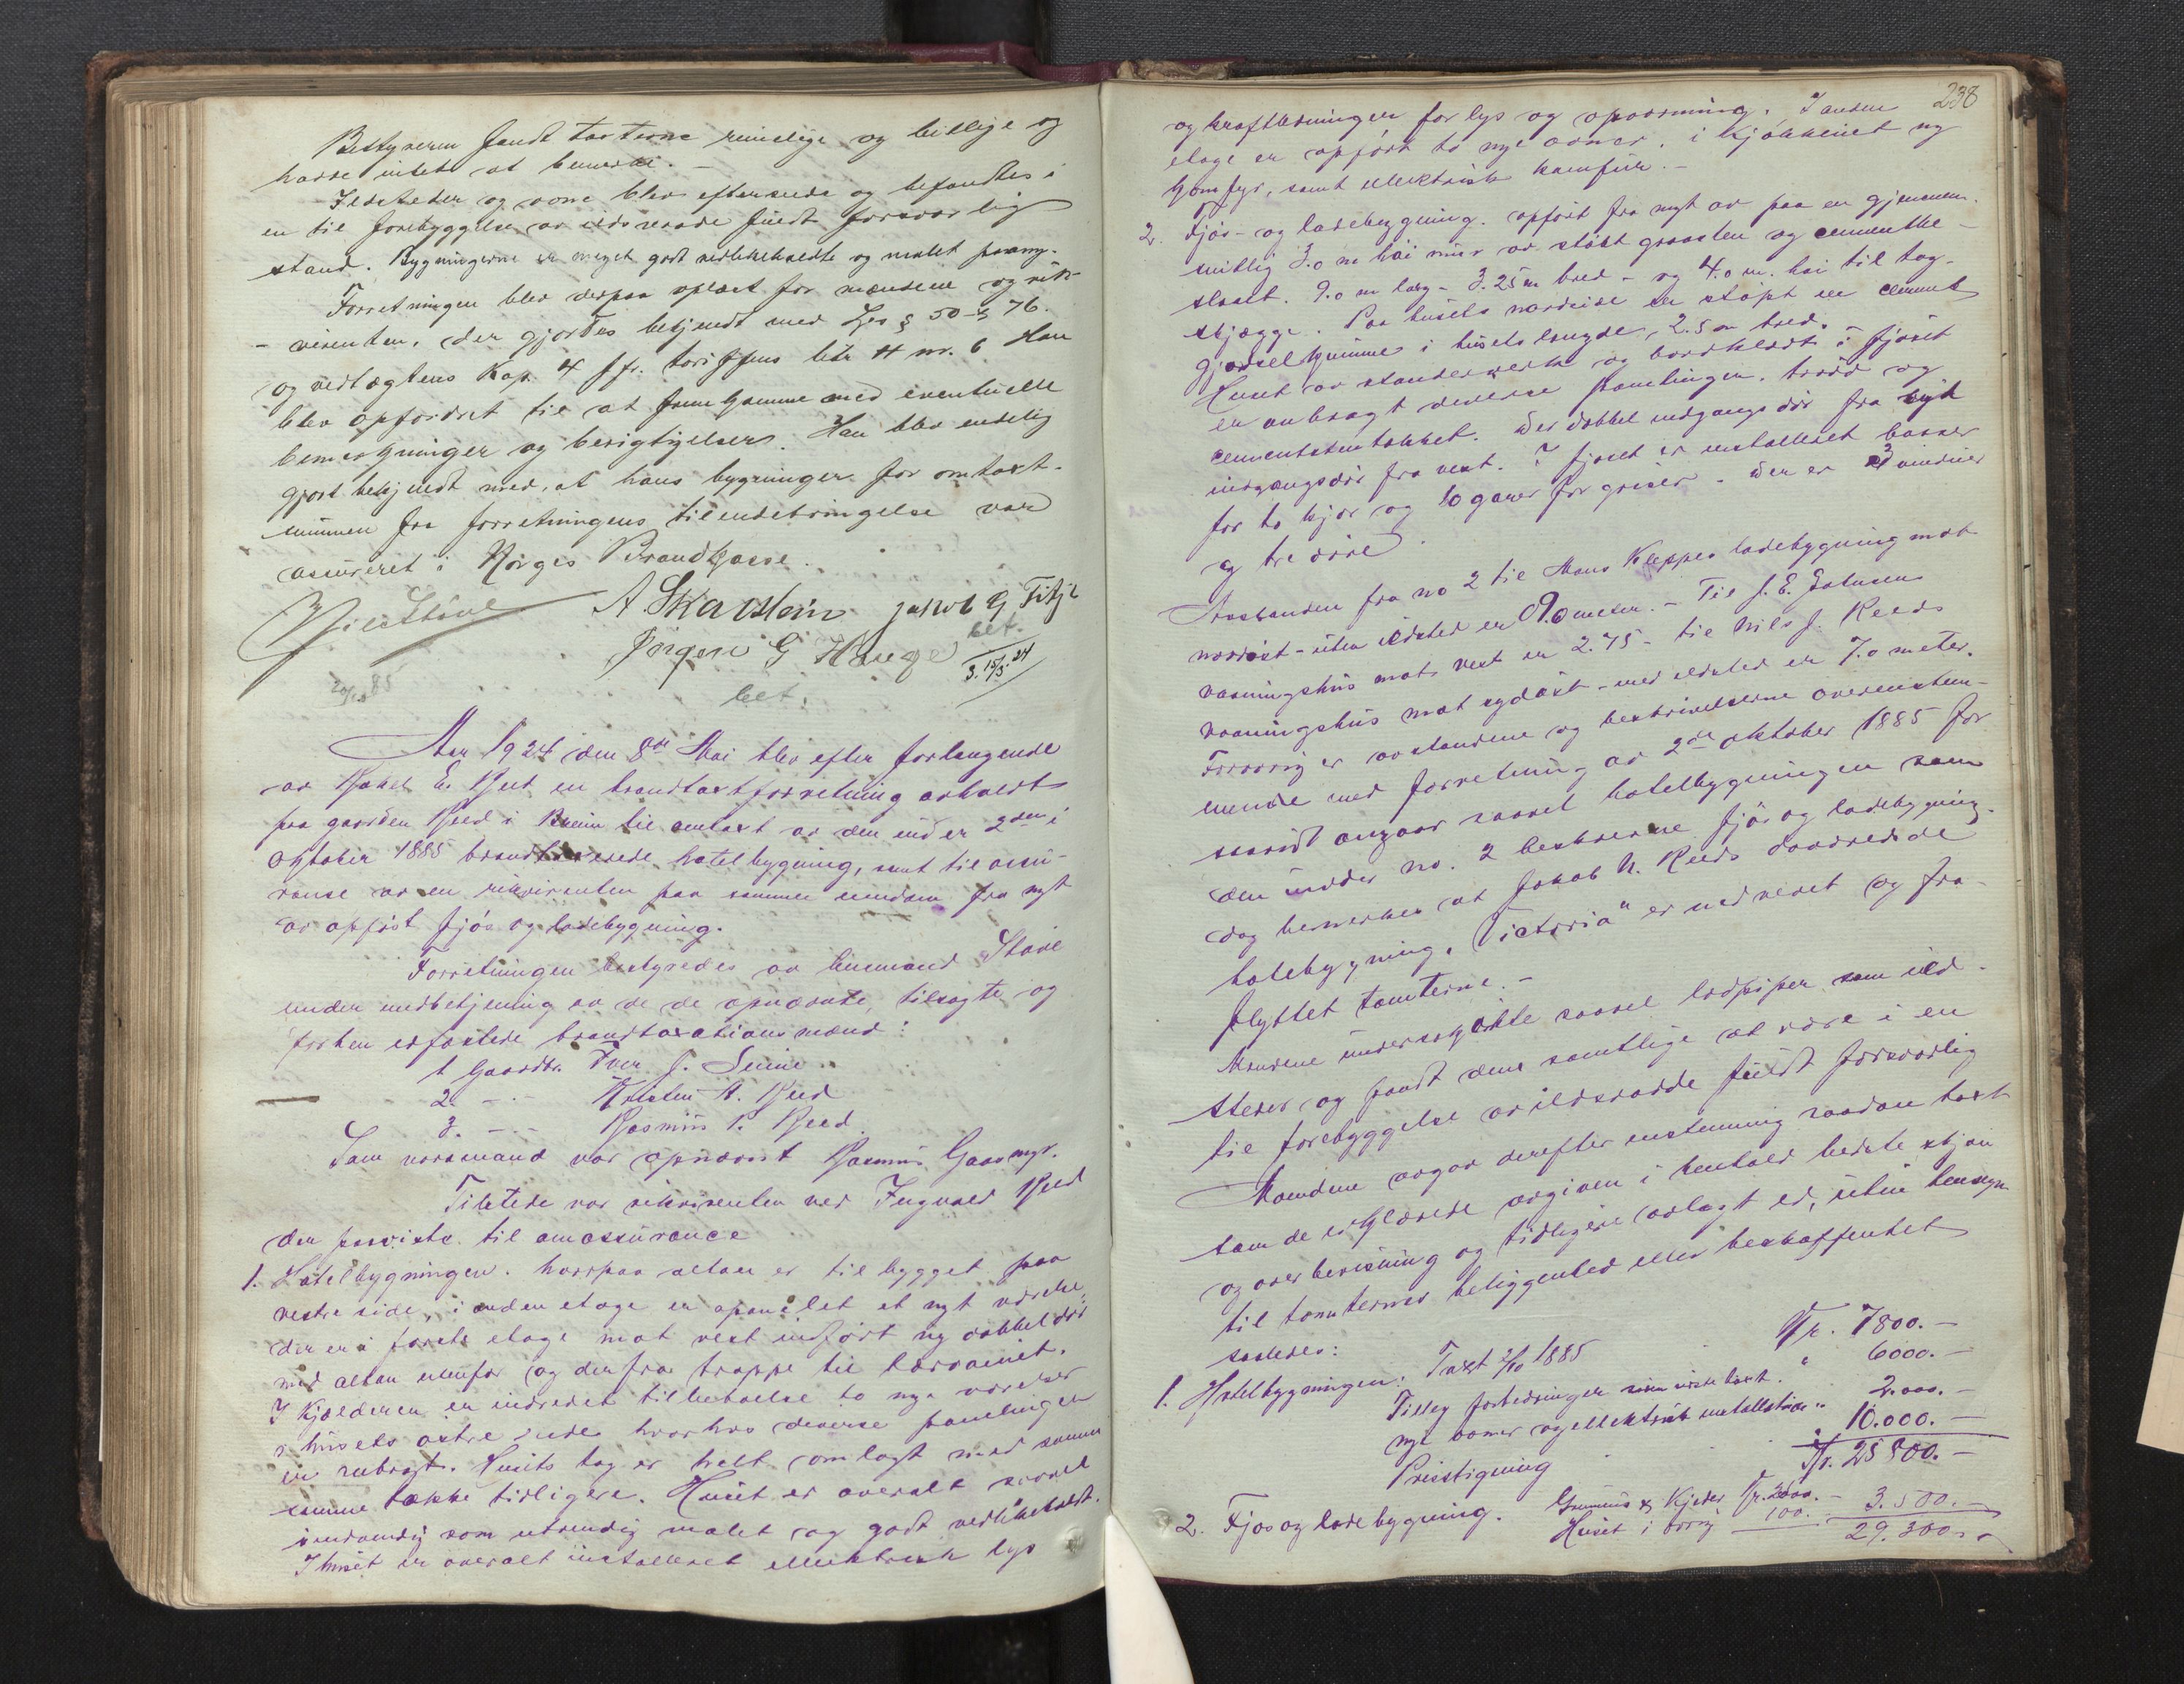 Bestyreren fandt taxterne rimelige og billige og
havde intet at bemerke. -
Ildsteder og rom blev efterseede og befandtes i
en til forebyggelse av ildsvaade fuldt forsvarlig
stand. Bygningerne er meget godt vedlikeholdte og malet
Forretningen blev derpaa oplæst for mændene og rek-
- virenten, der gjordes bekjendt med Lov § 50 - § 76.
og vedtægtens Kap. 4 jfr. tariffens litr H nr. 6 Han
blev opfordret til at fremkomme med eventuelle
bemerkninger og berigtigelser. Han blev endelig
gjort bekjendt med, at hans bygninger for omtaxt-
summen fra forretningens tilendebringelse var
assureret i Norges Brandkasse.
A Skarstein Jakob G Fitje
Jörgen G Hauge bet.
3. 15/5 24
85
bet.
Aar 1924 den 8de Mai blev efter forlangende
av Rakel E. Reed en brandtaxtforretning avholdt
paa gaarden Reed i Breim til omtaxt av den under 2den
Oktober 1885 brandtaxerede hotelbygning, samt til assu-
rance av en rekvirenten paa samme eiendom fra nyt
av opført fjös og ladebygning.
Forretningen bestyredes av lensmand Støve
under medbetjening av de de opnævnte, tilsagte og
forhen edfæstede brandtaxationsmænd:
1 Gaardbr. Iver J. Seime
2. - - A. Reed
3. - - Rasmus P. Reed.
Som varamand var opnævnt Rasmus Gaasmyr.
Tilstede var rekvirenten ved Ingvald Reed
der paaviste til omassurance
1. Hotelbygningen. hvorpaa altan er tilbygget paa
vestre side, i anden etage er opanelet et nyt værelse,
der er i förste etage mot vest indført ny dobbeldør
med altan utenfor og derfra trappe til
I kjælderen er indredet til beboelse to nye værelser
i husets östre ende hvorhos diverse panelinger
er anbragt. Husets tag er helt omlagt med samme
som tidligere. Huset er overalt saavel
indvendig som utvendig malet og godt vedlikeholdt.
I huset er overalt installeret elektrisk lys
238
og kraftledninger for lys og opvarming. I anden
etage er opført to nye ovner, i kjøkkenet ny
komfyr, samt elektrisk kamfur. -
2. Fjös- og ladebygning. opført fra nyt av paa en gjennem-
snitlig 3.0 m høi mur av støpt graasten og cementbe-
slaat. 9.0 m lang - 3.25 m bred - og 4.0 m. høi til tag-
skjægge. Paa husets nordside er støpt en cement
gjødselkumme i husets længde, 2.5 m bred.
Huset av standerverk og bordklædt i fjøset
er anbragt diverse panelinger. og
Der dobbel indgangsdør fra syd
indgangsdør fra vest. I fjøset er installeret baaser
for to kjør og to garer for griser - der er 3 vinduer
og tre døre.
Avstanden fra no 2 til Mons Kleppes ladebygning mot
nordøst - uten ildsted er 9.0 meter. - Til J. E.
vaaningshus mot vest er 2.75 - til Nils J. Reeds
vaaningshus mot sydöst - med ildsted er 7.0 meter.
Forøvrig er avstandene og beskrivelserne overenstem-
mende med forretning av 2de oktober 1885 for
saavidt angaar saavel hotelbygningen som
den under no. 2 beskrevne fjös og ladebygning.
dog bemerkes at Jakob N. Reeds
hotelbygning, "Victoria" er nedrevet og fra-
flyttet tomterne. -
Mændene undersøkte saavel ildpiper som ild-
steder og fandt dem samtlige at være i en
til forebyggelse av ildsvaade fuldt forsvarlig
Mændene avgav derefter enstemmig saadan taxt
som de erklærede avgiven i henhold bedste skjøn
og overbevisning og tidligere avlagt ed, uten hensyn
til tomternes beliggenhed eller beskaffenhet
saaledes:
1. Hotelbygningen: Taxt 2/10 1885 Kr. 7800. -
Tillæg forbedringer siden sidste taxt. " 6000. -
nye ovner og elektrisk installation " 2.000. -
Prisstigning " 10.000. -
Kr. 25 800. -
2. Fjös og ladebygning. Grunmur & Kjeder Kr. -
Huset i øvrig 3.500. -
29.300. -